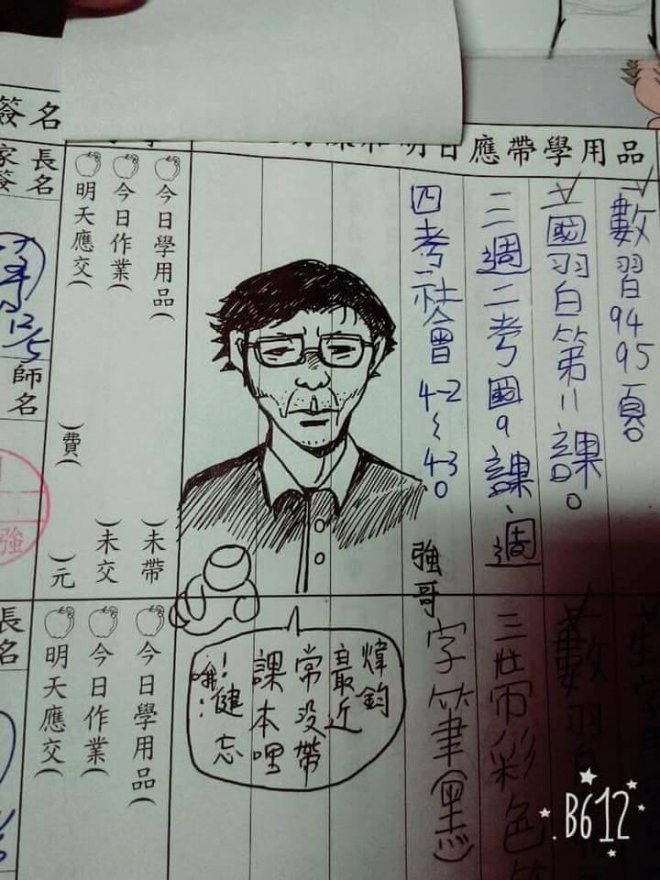 明日應帶學用品
數習94
95頁。
國習白第11課。
三週二考國9課、週
四考社會4-2
～4-3。
強哥
今日學用品（　）未帶
今日作業（　）未交
明天應交（　）費（　）元
簽名
長名
家簽
12/5
師名
強
三帶彩色筆
字筆（黑）
煒鈞
最近
常沒帶
課本哩
！健忘
哦！
今日學用品（
今日作業（
明天應交（
長名
B612